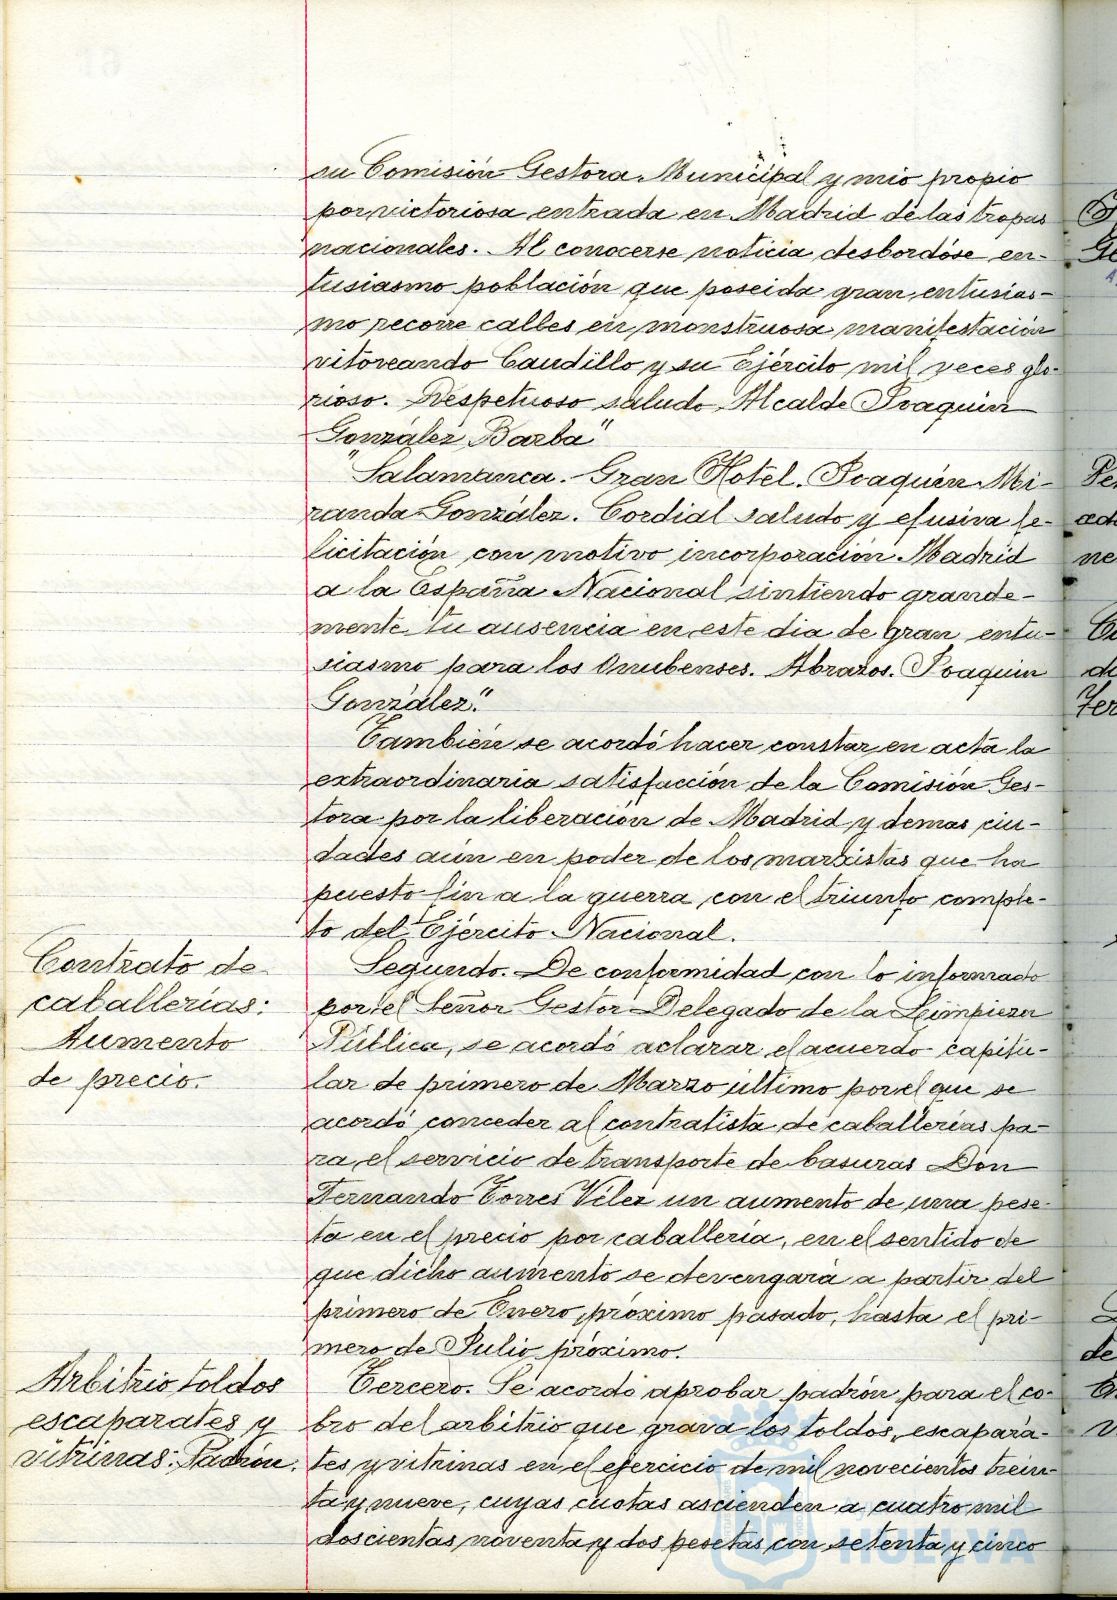 su Comisión Gestora Municipal y mio propio
por victoriosa entrada en Madrid de las tropas
nacionales. Al conocerse noticia desbordóse en-
tusiasmo población que poseida gran entusias-
mo recorre calles en monstruosa manifestación
vitoreando Caudillo y su Ejército mil veces glo-
rioso. Respetuoso saludo Alcalde Joaquín
González Barba"
"Salamanca. Gran Hotel. Joaquín Mi-
randa González. Cordial saludo y efusiva fe-
licitación con motivo incorporación Madrid
a la España Nacional sintiendo grande-
mente tu ausencia en este dia de gran entu-
siasmo para los Onubenses. Abrazos. Joaquin
González."
También se acordó hacer constar en acta la
extraordinaria satisfacción de la Comisión Ges-
tora por la liberación de Madrid y demas ciu-
dades aún en poder de los marxistas que ha
puesto fin a la guerra con el triunfo comple-
to del Ejército Nacional.
Contrato de
caballerías:
Aumento
de precio.
Segundo. De conformidad con lo informado
por el Señor Gestor Delegado de la Limpieza
Pública, se acordó aclarar el acuerdo capitu-
lar de primero de Marzo último por el que se
acordó conceder al contratista de caballerías pa-
ra el servicio de transporte de basuras Don
Fernando Torres Vélez un aumento de una pese-
ta en el precio por caballería, en el sentido de
que dicho aumento se devengará a partir del
primero de Enero próximo pasado, hasta el pri-
mero de Julio próximo.
Arbitrio toldos
escaparates y
vitrinas: Padrón.
Tercero. Se acordó aprobar padrón para el co-
bro del arbitrio que grava los toldos, escapara-
tes y vitrinas en el ejercicio de mil novecientos trein-
ta y nueve, cuyas cuotas ascienden a cuatro mil
doscientas noventa y dos pesetas con setenta y cinco
HUELVA